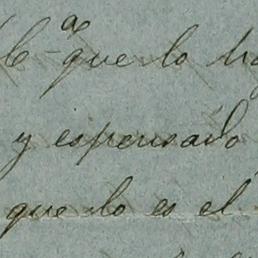 que lo
y espresado
que lo es el